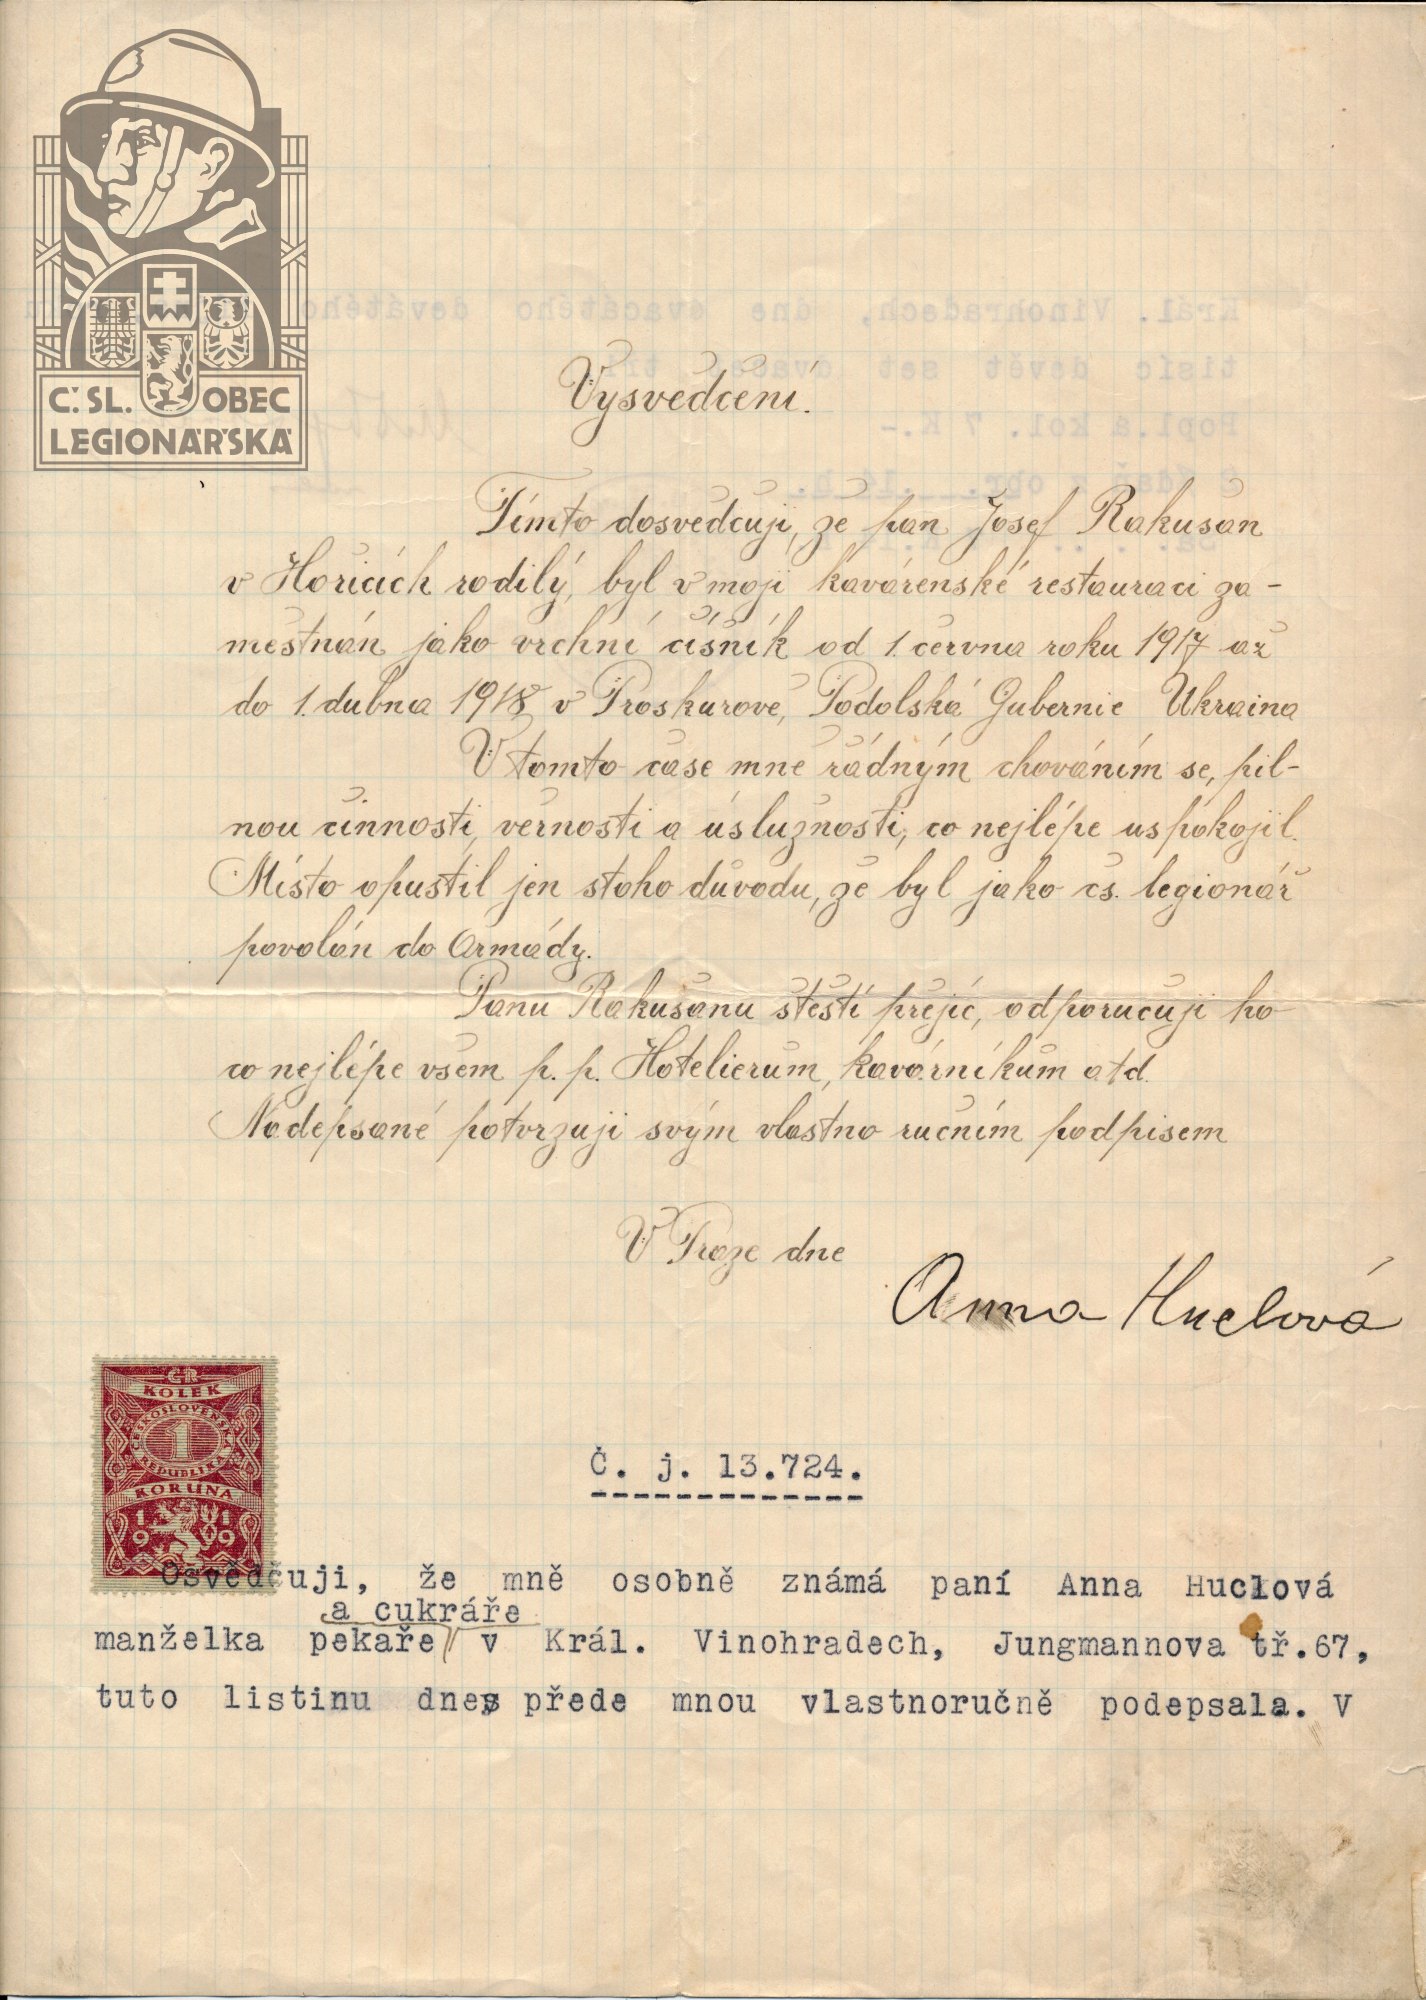 Č.SL. OBEC
LEGIONÁŘSKÁ
Vysvědčení.
Tímto dosvědčuji, že pan Josef Rakušan
v Hořicích rodilý, byl v moji kavárenské restauraci za-
městnán jako vrchní číšník od 1. června roku 1917 až
do 1. dubna 1918 v Proskurově, Podolská Gubernie Ukraina
V tomto čase mne řádným chováním se, pil-
nou činností, věrností a úslužností, co nejlépe uspokojil.
Místo opustil jen stoho důvodu, že byl jako čs. legionář
povolán do Armády.
Panu Rakušanu štěstí přejíc, odporučuji ho
co nejlépe všem p. p. Hotelierům, kavárníkům atd.
Nadepsané potvrzuji svým vlastno ručním podpisem
V Praze dne
Anna Huclová
ČR
KOLEK
ČESKOSLOVENSKÁ
1
REPUBLIKA
KORUNA
19 19
Č. j. 13.724.
Osvědčuji, že mně osobně známá paní Anna Huclová
a cukráře
manželka pekaře v Král. Vinohradech, Jungmannova tř.67,
tuto listinu dnes přede mnou vlastnoručně podepsala. V